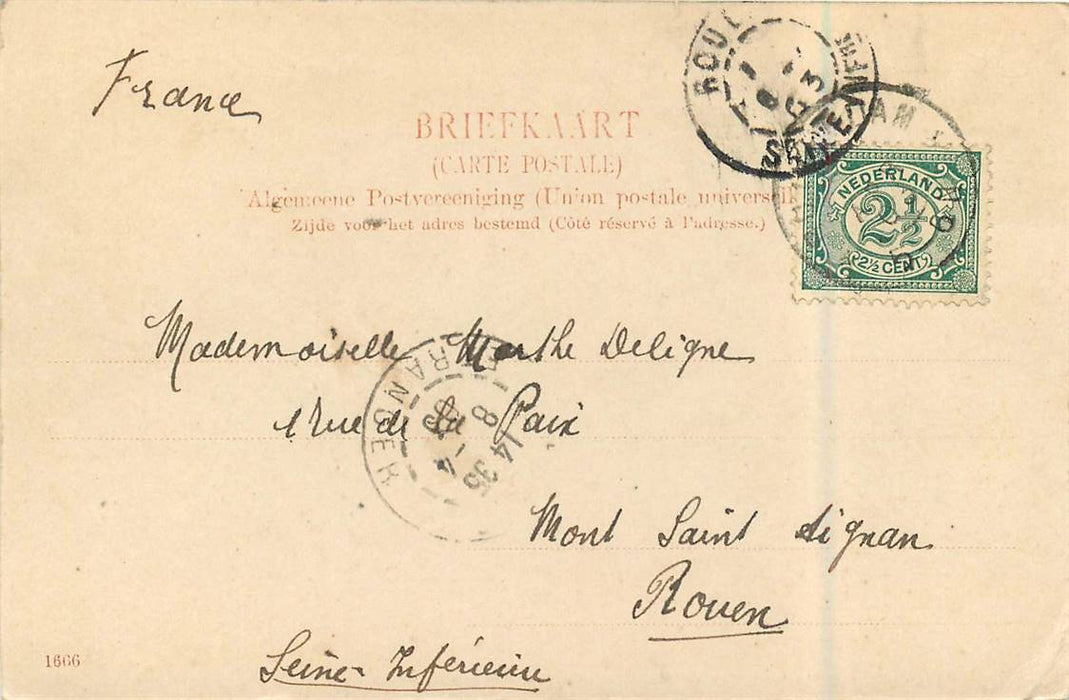 France
BRIEFKAART
(CARTE POSTALE)
Algemeene Postvereeniging (Union postale universelle)
Zijde voor het adres bestemd (Côté réservé à l'adresse.)
NEDERLAND
2½
2½ CENT
Mademoiselle Marthe Deligne
1 rue de la Paix
Mont Saint Aignan
Rouen
Seine-Inférieure
1666
ETRANGER